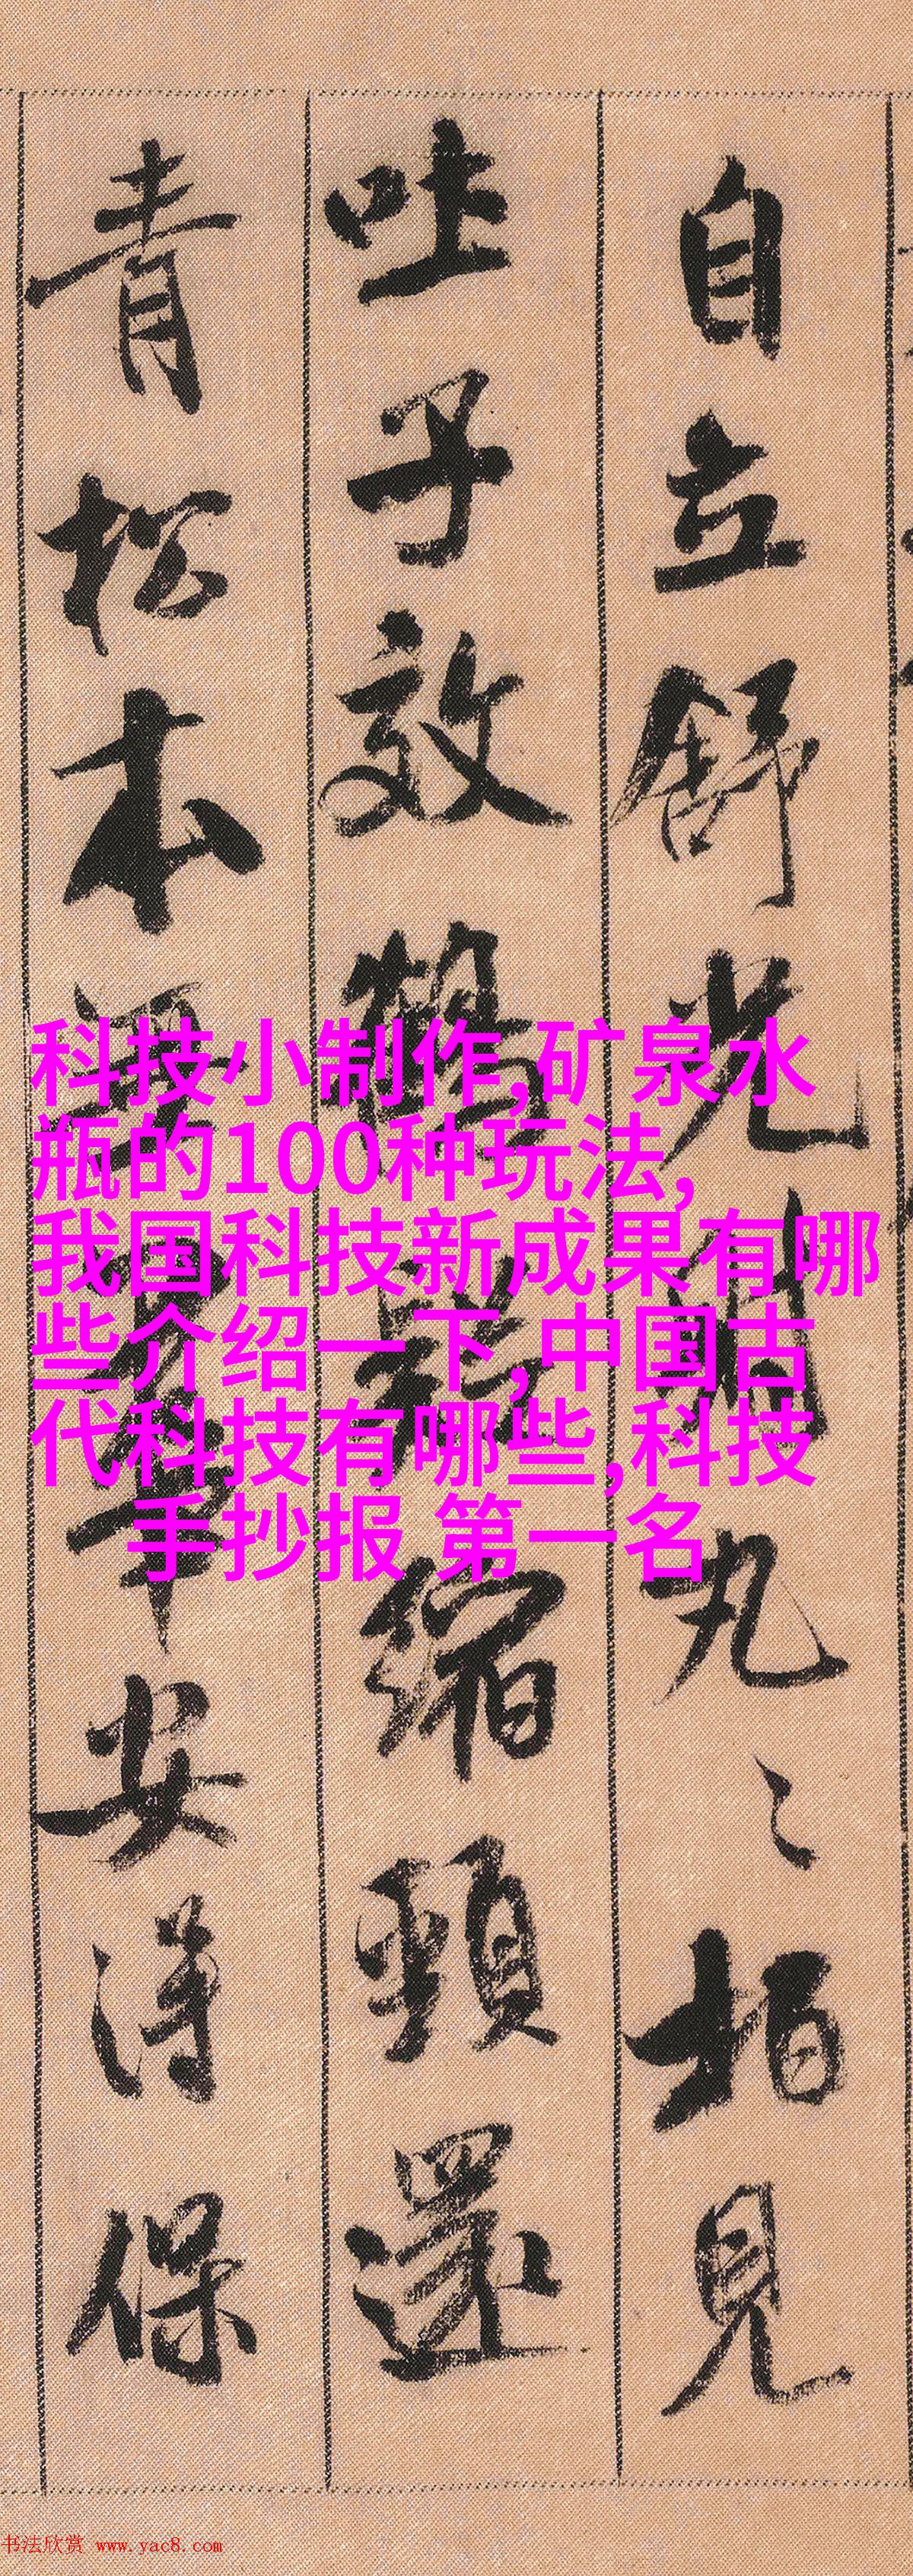 自立舒光射丸〻柏見
吐子效鶴疑縮頸還
青松本無華安得保
科技小制作,矿泉水
瓶的100种玩法,
我国科技新成果有哪
些介绍一下,中国古
代科技有哪些,科技
手抄报 第一名
书法欣赏 www.yac8.com